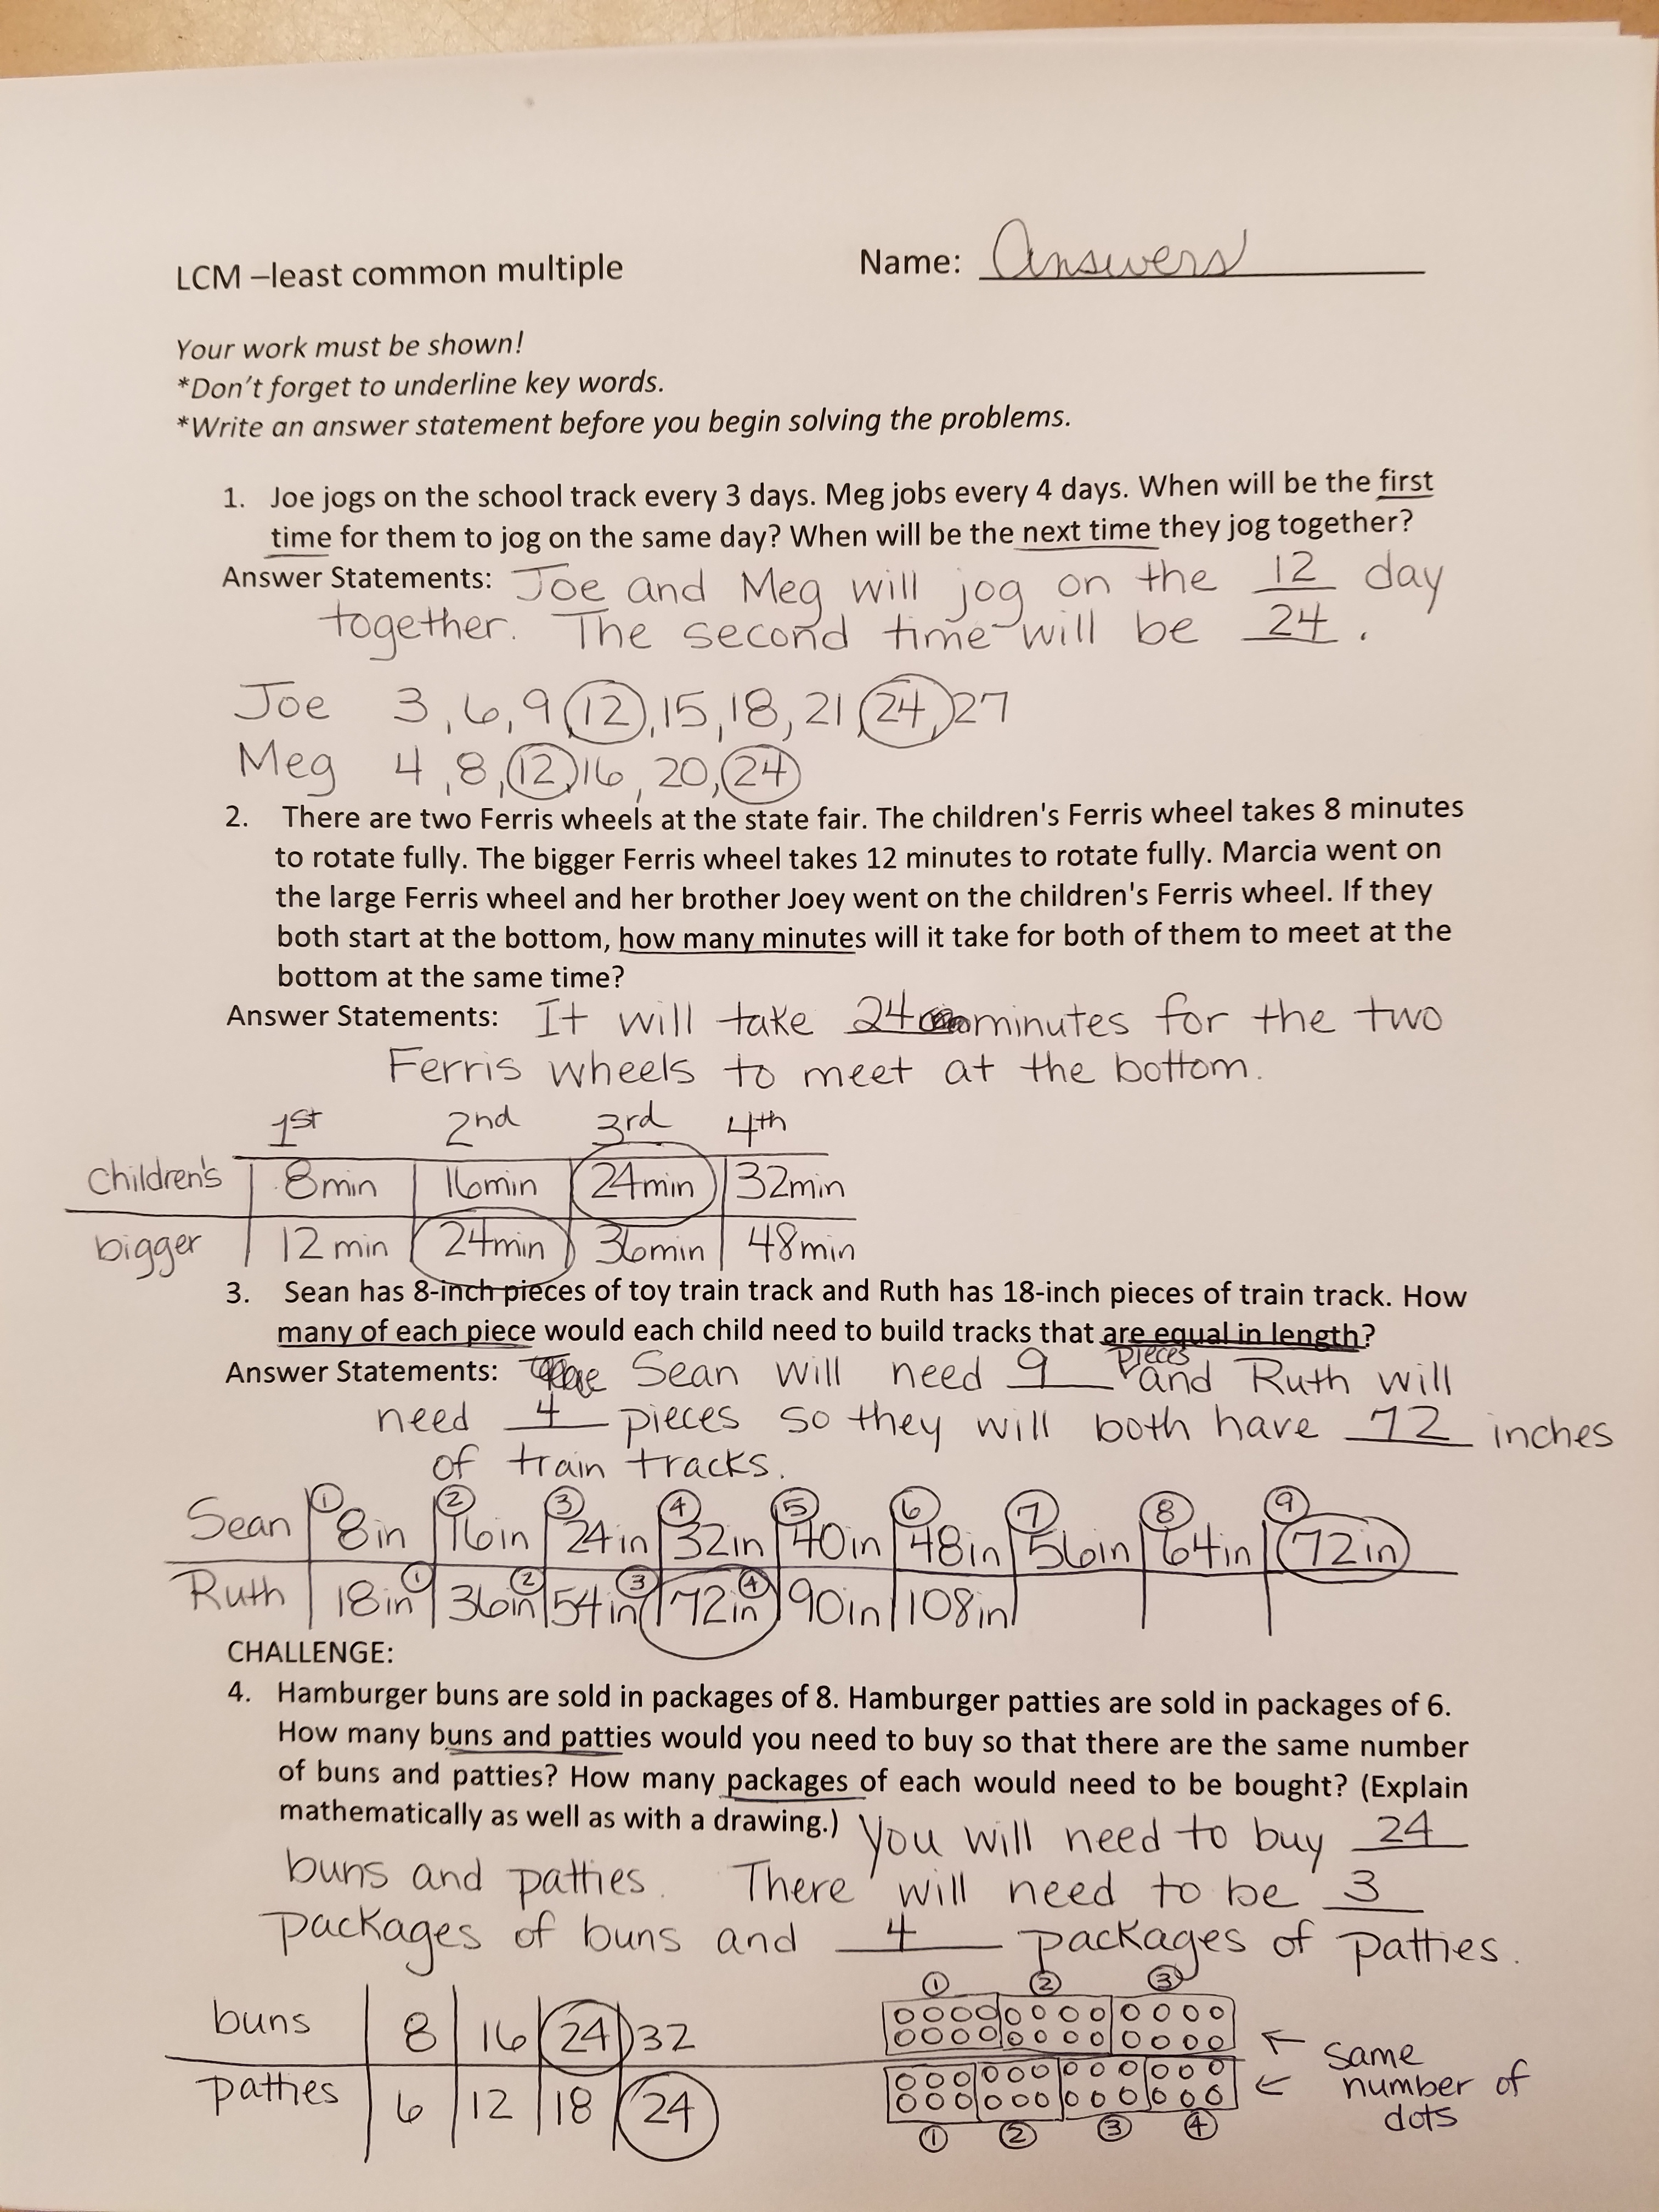 LCM –least common multiple Name: Answers
Your work must be shown!
*Don't forget to underline key words.
*Write an answer statement before you begin solving the problems.
1. Joe jogs on the school track every 3 days. Meg jobs every 4 days. When will be the first
time for them to jog on the same day? When will be the next time they jog together?
Answer Statements: Joe and Meg will jog on the 12 day
together. The second time will be 24.
Joe 3, 6, 9, 12, 15, 18, 21, 24, 27
Meg 4, 8, 12, 16, 20, 24
2. There are two Ferris wheels at the state fair. The children's Ferris wheel takes 8 minutes
to rotate fully. The bigger Ferris wheel takes 12 minutes to rotate fully. Marcia went on
the large Ferris wheel and her brother Joey went on the children's Ferris wheel. If they
both start at the bottom, how many minutes will it take for both of them to meet at the
bottom at the same time?
Answer Statements: It will take 24 minutes for the two
Ferris wheels to meet at the bottom.
1st 2nd 3rd 4th
Children's 8min 16min 24min 32min
bigger 12 min 24min 36min 48min
3. Sean has 8-inch pieces of toy train track and Ruth has 18-inch pieces of train track. How
many of each piece would each child need to build tracks that are equal in length?
pieces
Answer Statements: Sean will need 9 and Ruth will
need 4 pieces so they will both have 72 inches
of train tracks.
1 2 3 4 5 6 7 8 9
Sean 8in 16in 24in 32in 40in 48in 56in 64in 72in
1 2 3 4
Ruth 18in 36in 54in 72in 90in 108in
CHALLENGE:
4. Hamburger buns are sold in packages of 8. Hamburger patties are sold in packages of 6.
How many buns and patties would you need to buy so that there are the same number
of buns and patties? How many packages of each would need to be bought? (Explain
mathematically as well as with a drawing.) You will need to buy 24
buns and patties. There will need to be 3
packages of buns and 4 packages of patties.
1 2 3
buns 8 16 24 32
patties 6 12 18 24
same
number of
dots
1 2 3 4